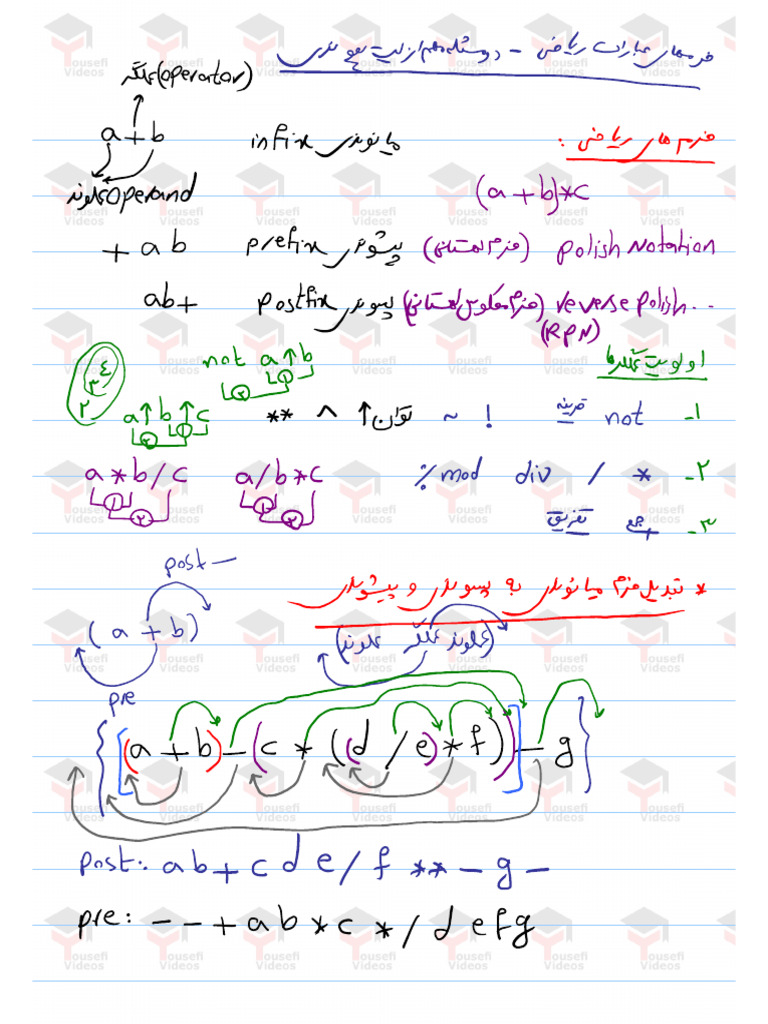 فرمهای عبارات ریاضی -
عملگر(operator)
a + b
میانوندی infix
فرم های ریاضی :
عملوند operand
(a + b)*c
+ a b
prefix پیشوندی (فرم لهستانی) polish Notation
ab+
postfix پسوندی (فرم معکوس لهستانی) reverse polish ..
(RPN)
not a ↑ b
اولویت عملگرها
۴
۳
۲
a ↑ b ↑ c
۱- not قرینه ! ~ توان ↑ ^ **
۲- * / div mod %
a * b / c
a / b * c
۳- جمع تفریق
post -
* تبدیل فرم میانوندی به پسوندی و پیشوندی
(a + b)
(عملوند عملگر عملوند)
pre
{[(a + b) - (c * ((d / e) * f))] - g}
post: a b + c d e / f * * - g -
pre: - - + a b * c * / d e f g
Yousefi Videos